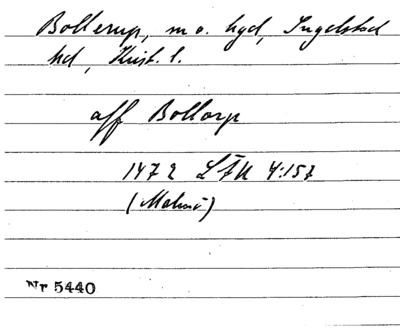 Bollerup, mo. hgd, Ingelstad
hd, Krist. l.
aff Bollorp
1472 LÄU 4:157
(Malmö)
Nr 5440